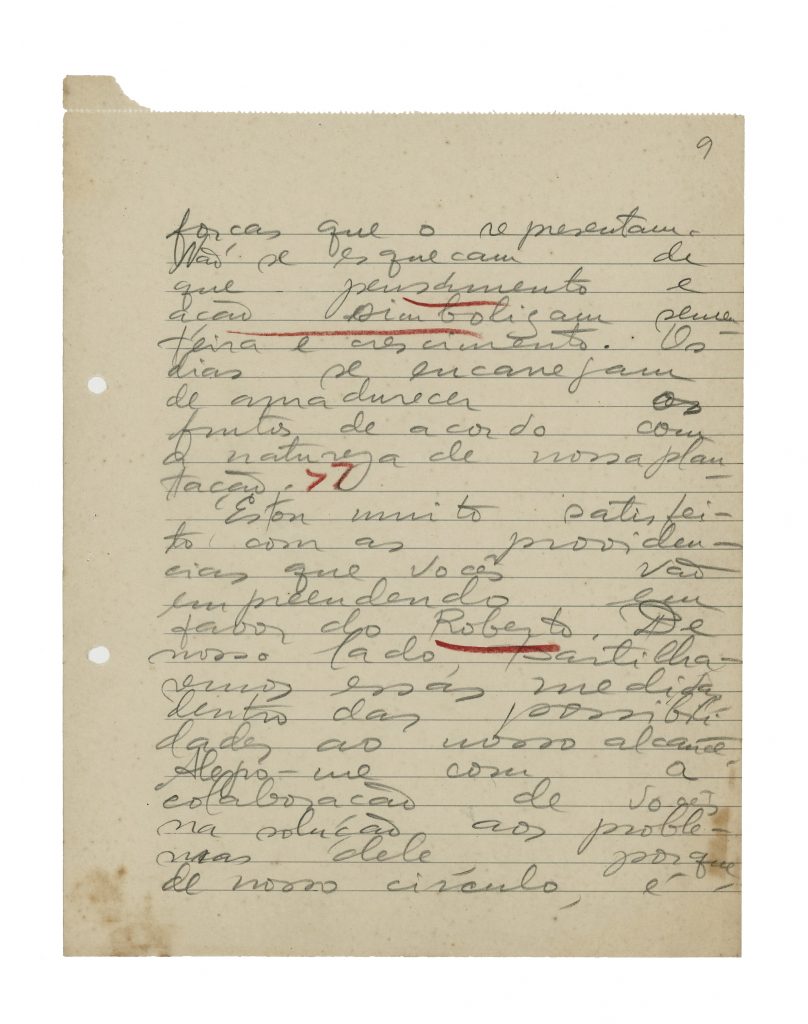 9
forças que o representam.
Não se esqueçam de
que pensamento e
ação simbolizam semen-
teira e crescimento. Os
dias se encarregam
de amadurecer os
frutos de acordo com
a natureza de nossa plan-
tação.
Estou muito satisfei-
to com as providen-
cias que vocês vão
empreendendo em
favor do Roberto. De
nosso lado, partilha-
remos essas medidas
dentro das possibili-
dades ao nosso alcance.
Alegro-me com a
colaboração de vocês
na solução aos proble-
mas dele porque
de nosso círculo, é